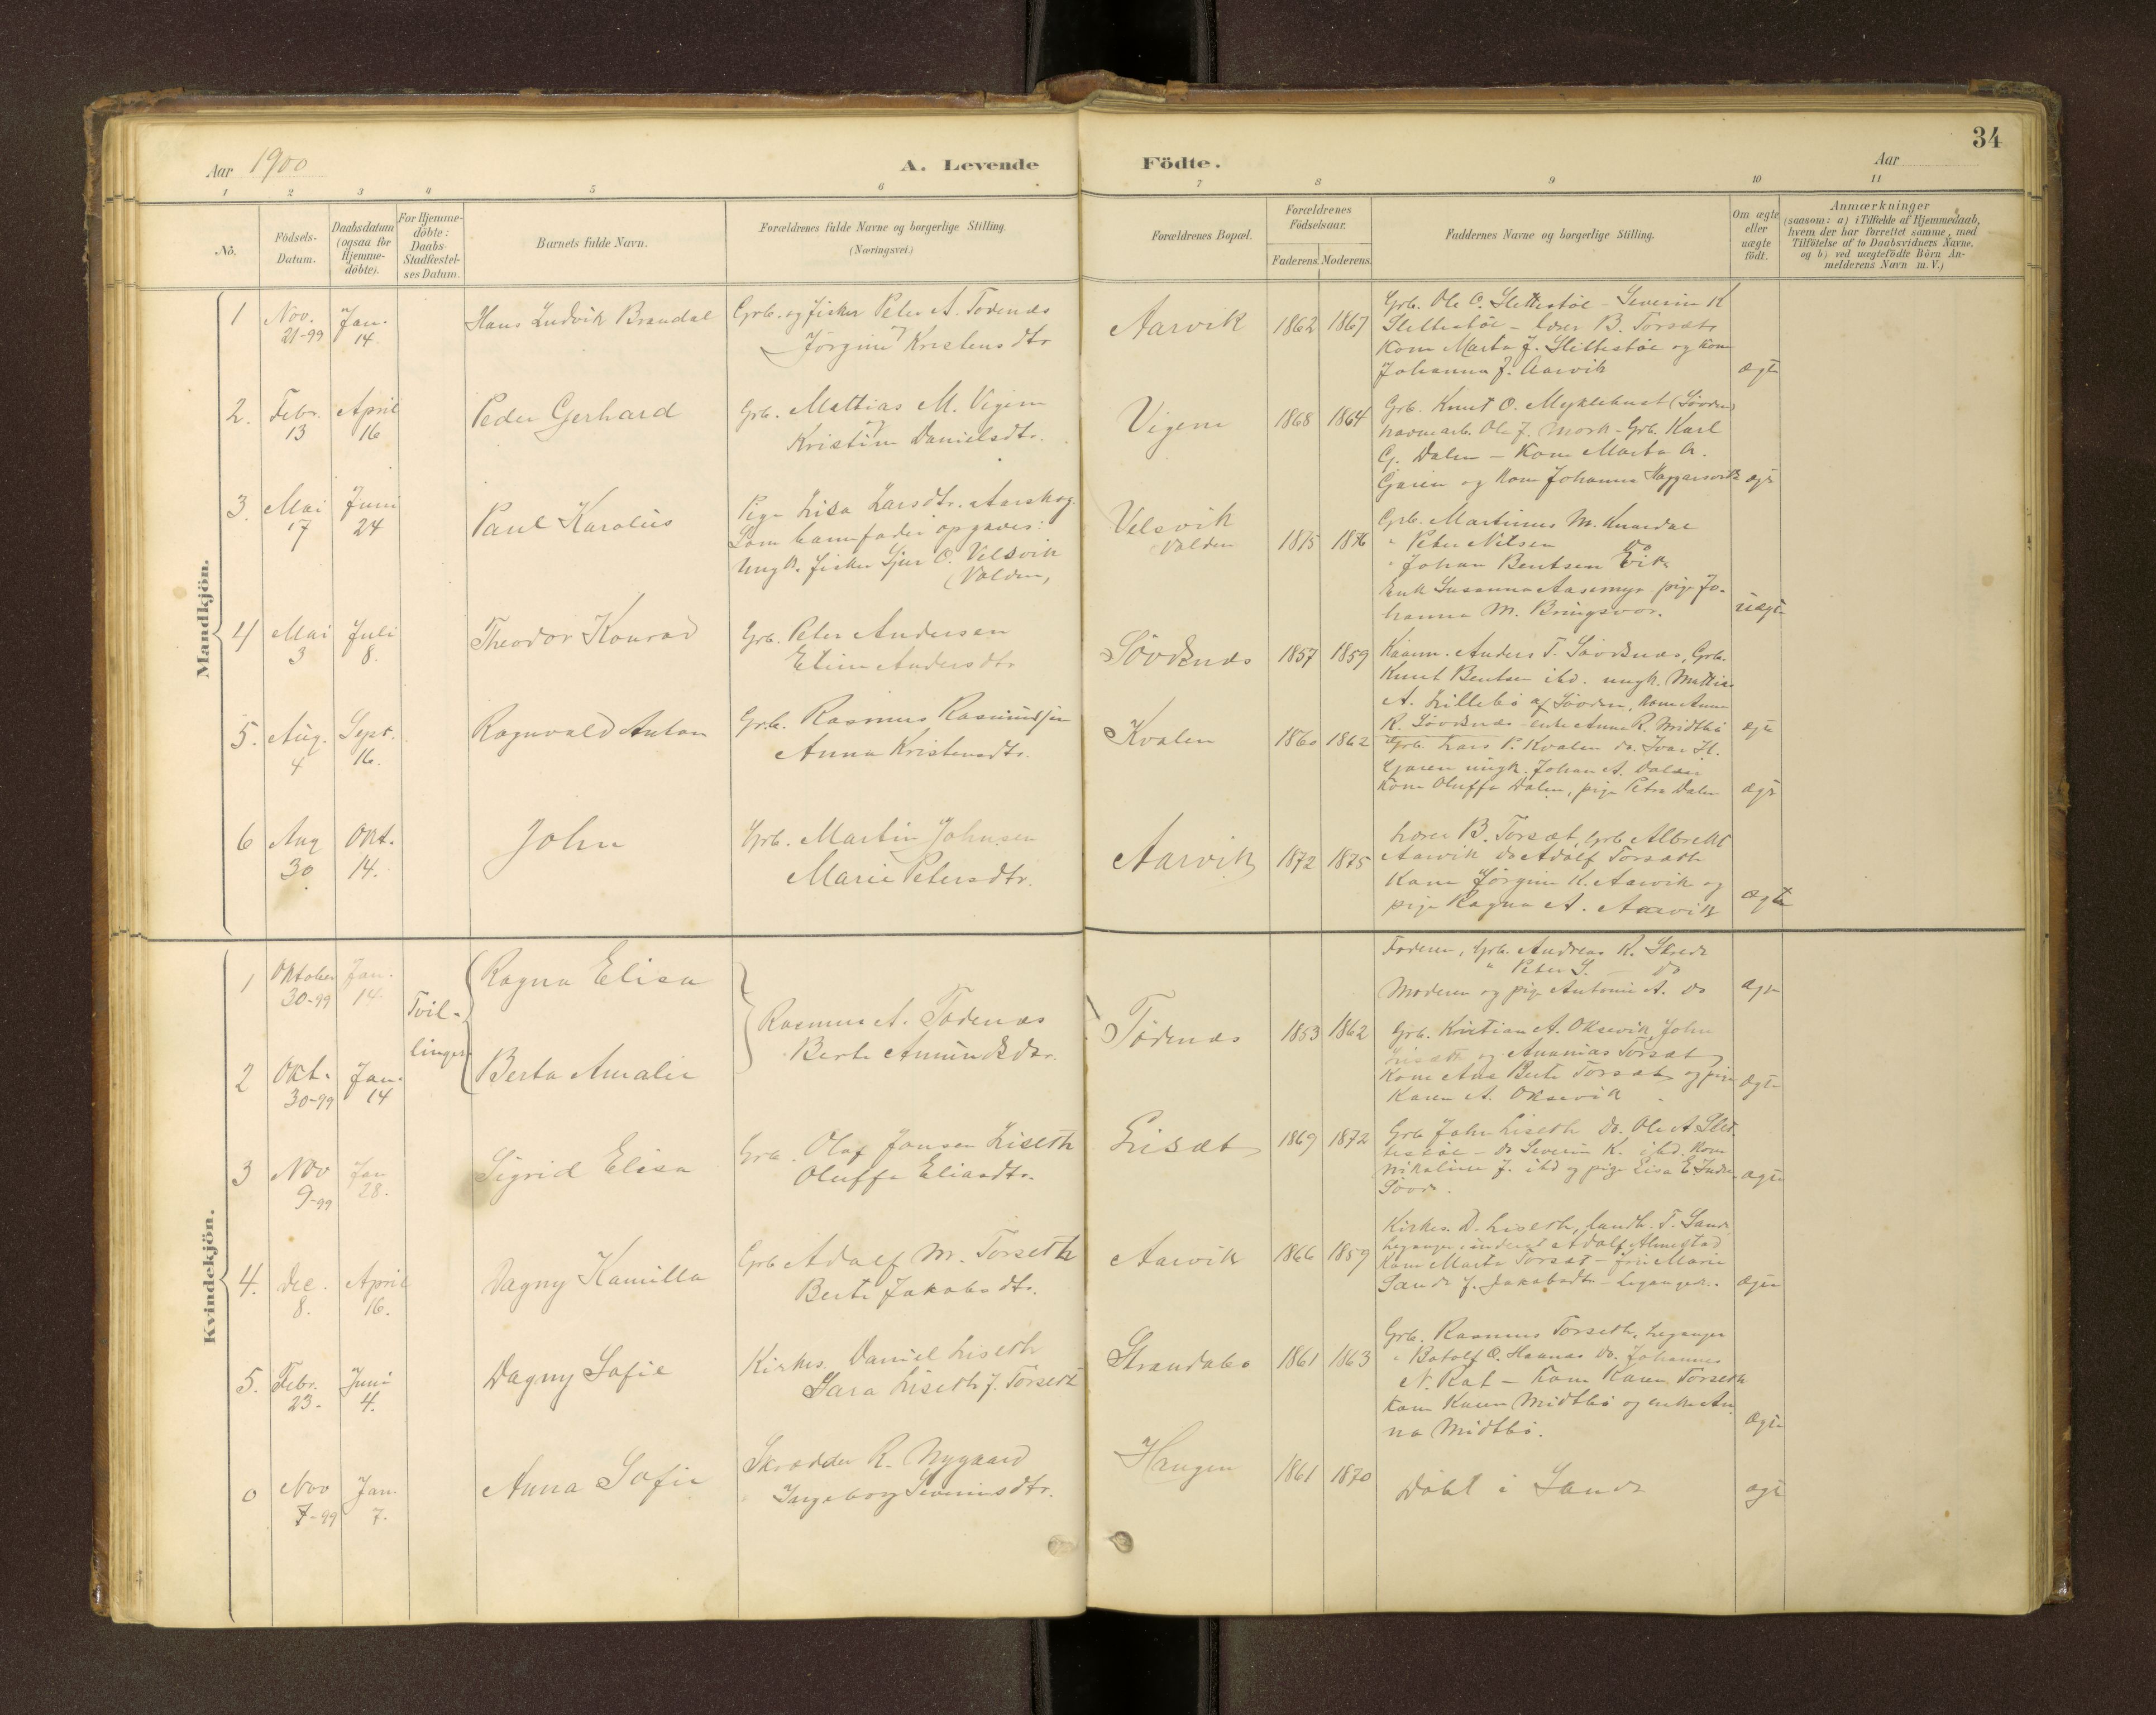 34
Aar 1900
A. Levende Födte.
Aar
1 2 3 4 5 6 7 8 9 10 11
No.
Födsels-Datum.
Daabsdatum (ogsaa for Hjemme-döbte).
For Hjemme-döbte: Daabs-Stadfæstel-ses Datum.
Barnets fulde Navn.
Forældrenes fulde Navne og borgerlige Stilling. (Næringsvei.)
Forældrenes Bopæl.
Forældrenes Födselsaar.
Faderens. Moderens.
Faddernes Navne og borgerlige Stilling.
Om ægte eller uægte födt.
Anmærkninger
(saasom: a) i Tilfælde af Hjemmedaab, hvem der har forrettet samme, med Tilföielse af to Daabsvidners Navne, og b) ved uægtefödte Börn An-melderens Navn m. V.)
Mandkjön.
1 Nov. 21-99 Jan. 14. Hans Ludvik Brandal
Grb. og fisker Peter A. Tödenæs
Jörgine Kristensdtr
Aarvik 1862 1867
Grb. Ole O. Slettestöe - Severin K
Slettestöe - lærer B. Torsæt
Kone Marta J. Slettestöe og kone
Johanna J. Aarvik ægte
2. Febr. 13 April 16 Peder Gerhard
Grb. Mattias M. Vigem
Kristine Danielsdtr.
Vigem 1868 1864
Grb. Knut O. Myklebust (Søvden)
havnearb. Ole J. Mork - Grb. Karl
G. Dalen - Kone Marta A.
Gjæren og Kone Johanna ægte
3. Mai 17 Juni 24 Paul Karolus
Pige Lisa Larsdtr. Aarskog.
Som barnefader opgaves:
Ungk. fisker Sjur O. Velsvik
(Volden,
Velsvik
Volden 1875 1876
Grb. Martinus M.
" Peter Nilsen do
" Johan Bentsen Vik
Enk Susanna Aasemyr pige Jo-
hanna M. Bringsvor. uægte
4 Mai 3 Juli 8. Theodor Konrad
Grb. Peter Andersen
Eline Andersdtr
Søvdsnæs 1857 1859
Anders T. Søvdsnæs, Grb.
Knut Bentsen ibd. ungk. Mattias
A. Lillebö af Søvden, Kone Anne
R. Søvdsnæs enke Anne R. Midtbö ægte
5. Aug. 4 Sept. 16. Ragnvald Anton
Grb. Rasmus Rasmussen
Anna Kristensdtr.
Kvalen 1860 1862
Grb. Lars P. Kvalen do. Ivar H.
Gjæren ungk. Johan A. Dalen
Kone Oluffa Dalen, pige Petra Dalen ægte
6 Aug 30 Okt. 14. John
Grb. Martin Johnsen
Marie Petersdtr.
Aarvik 1872 1875
Lærer B. Torsæt, Grb. Albrekt
Aarvik do Adolf Torsæth
Kone Jörgine K. Aarvik og
pige Ragna A. Aarvik ægte
Kvindekjön.
1 Oktober 30-99 Jan. 14 Tvil- Ragna Elisa
2 Okt. 30-99 Jan. 14 linger Berta Amalie
Rasmus A. Tödenæs
Berte Amundsdtr.
Tödenæs 1853 1862
Faderen, Grb. Andreas R. Skrede
" Peter S. — do
Moderen og pige Antonie A. do ægte
Grb. Kristian A. Oksevik, John
Lisæth og Ananias Torsæt
Kone Ane Berte Torsæt og pige
Karen A. Oksevik ægte
3 Nov 9-99 Jan 28. Sigrid Elisa
Grb. Olaf Jonsen Liseth
Oluffa Eliasdtr.
Lisæt 1869 1872
Grb John Liseth do. Ole A Slet-
testöe - do Severin K. ibd. Kone
Nikoline J. ibd og pige Lisa E. Indre
Søvde. ægte
4. Dec. 8. April 16. Dagny Kamilla
Grb Adolf M. Torseth
Berte Jakobsdtr.
Aarvik 1866 1859
Kirkes. D. Liseth, landh. T. Sande
Adolf Almestad
Kone Marte Torsæt - fru Marie
Sande f. Jakobsdtr - Leganger. ægte
5. Febr. 23. Juni 4. Dagny Sofie
Kirkes. Daniel Liseth
Sara Liseth f. Torseth
Strandabø 1861 1863
Grb. Rasmus Torseth, Leganger
" Botolf O. Haanæs do. Johannes
N. Rat - Kone Karen Torseth
Kone Karen Midtbö og enke An
na Midtbö. ægte
0 Nov 7-99 Jan. 7. Anna Sofie
Skrædder R. Nygaard
Ingeborg Severinsdtr.
Haugen 1861 1870
Döbt i Sande ægte